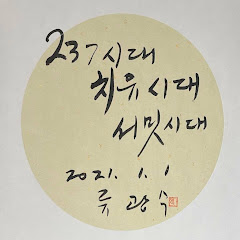 237시대
치유시대
서밋시대
2021. 1. 1
류광수